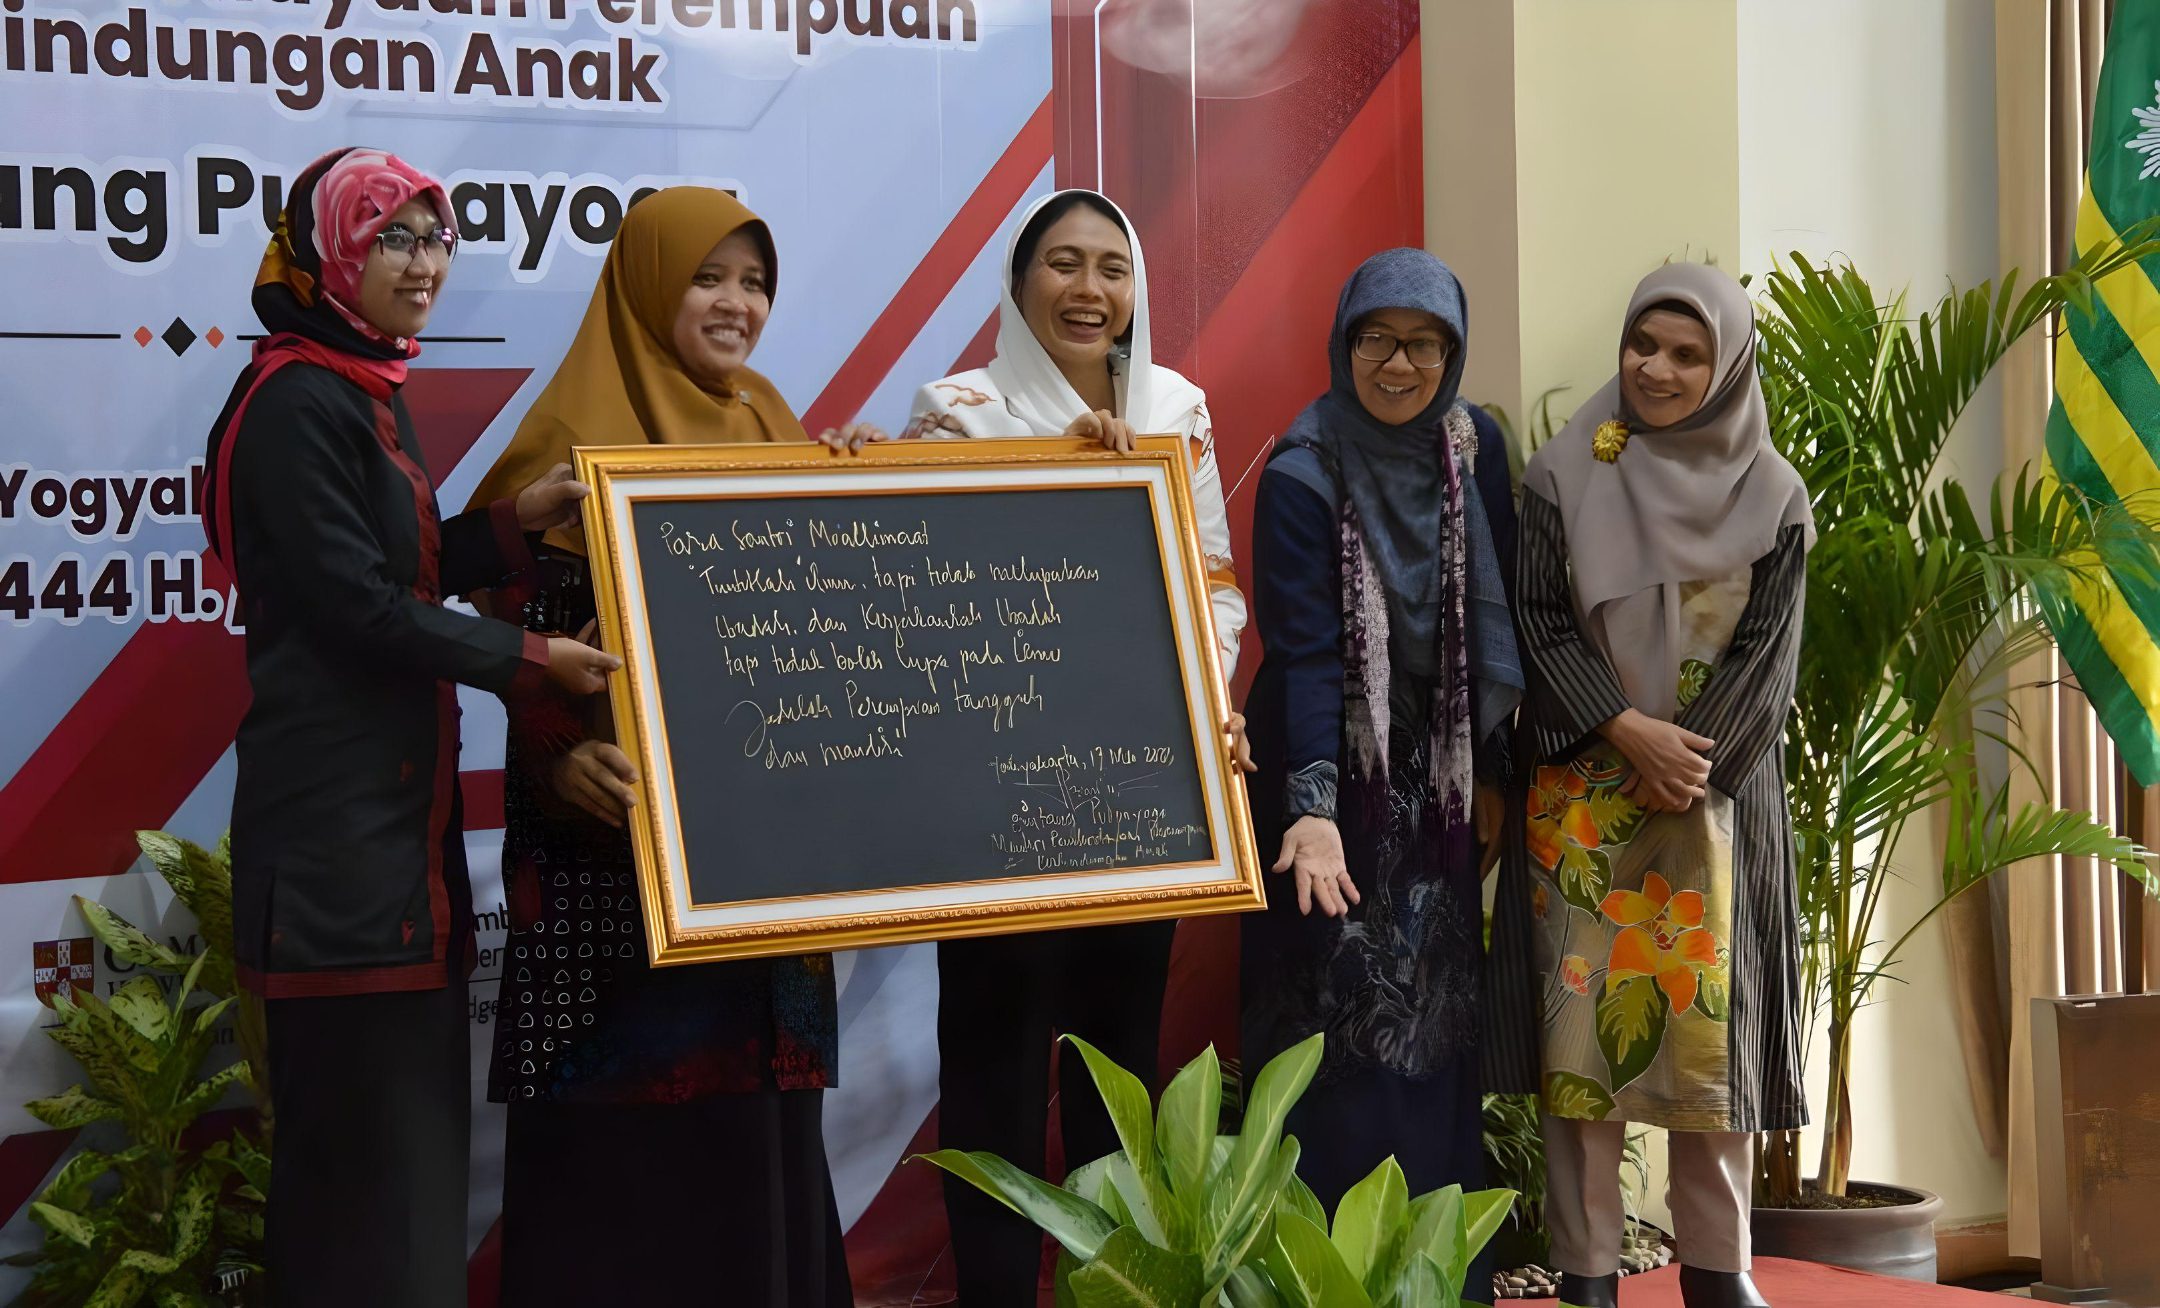 Perempuan
lindungan Anak
ang Pu ayoga
Yogya
1444 H.
Para Santri Mu'allimaat
"Tuntutlah" ilmu, tapi tidak melupakan
ibadah, dan Kerjakanlah Ibadah
tapi tidak boleh lupa pada ilmu
Jadilah Perempuan tangguh
dan mandiri
Yogyakarta, 17
Bintang Puspayoga
Menteri Pemberdayaan Perempuan
Perlindungan Anak